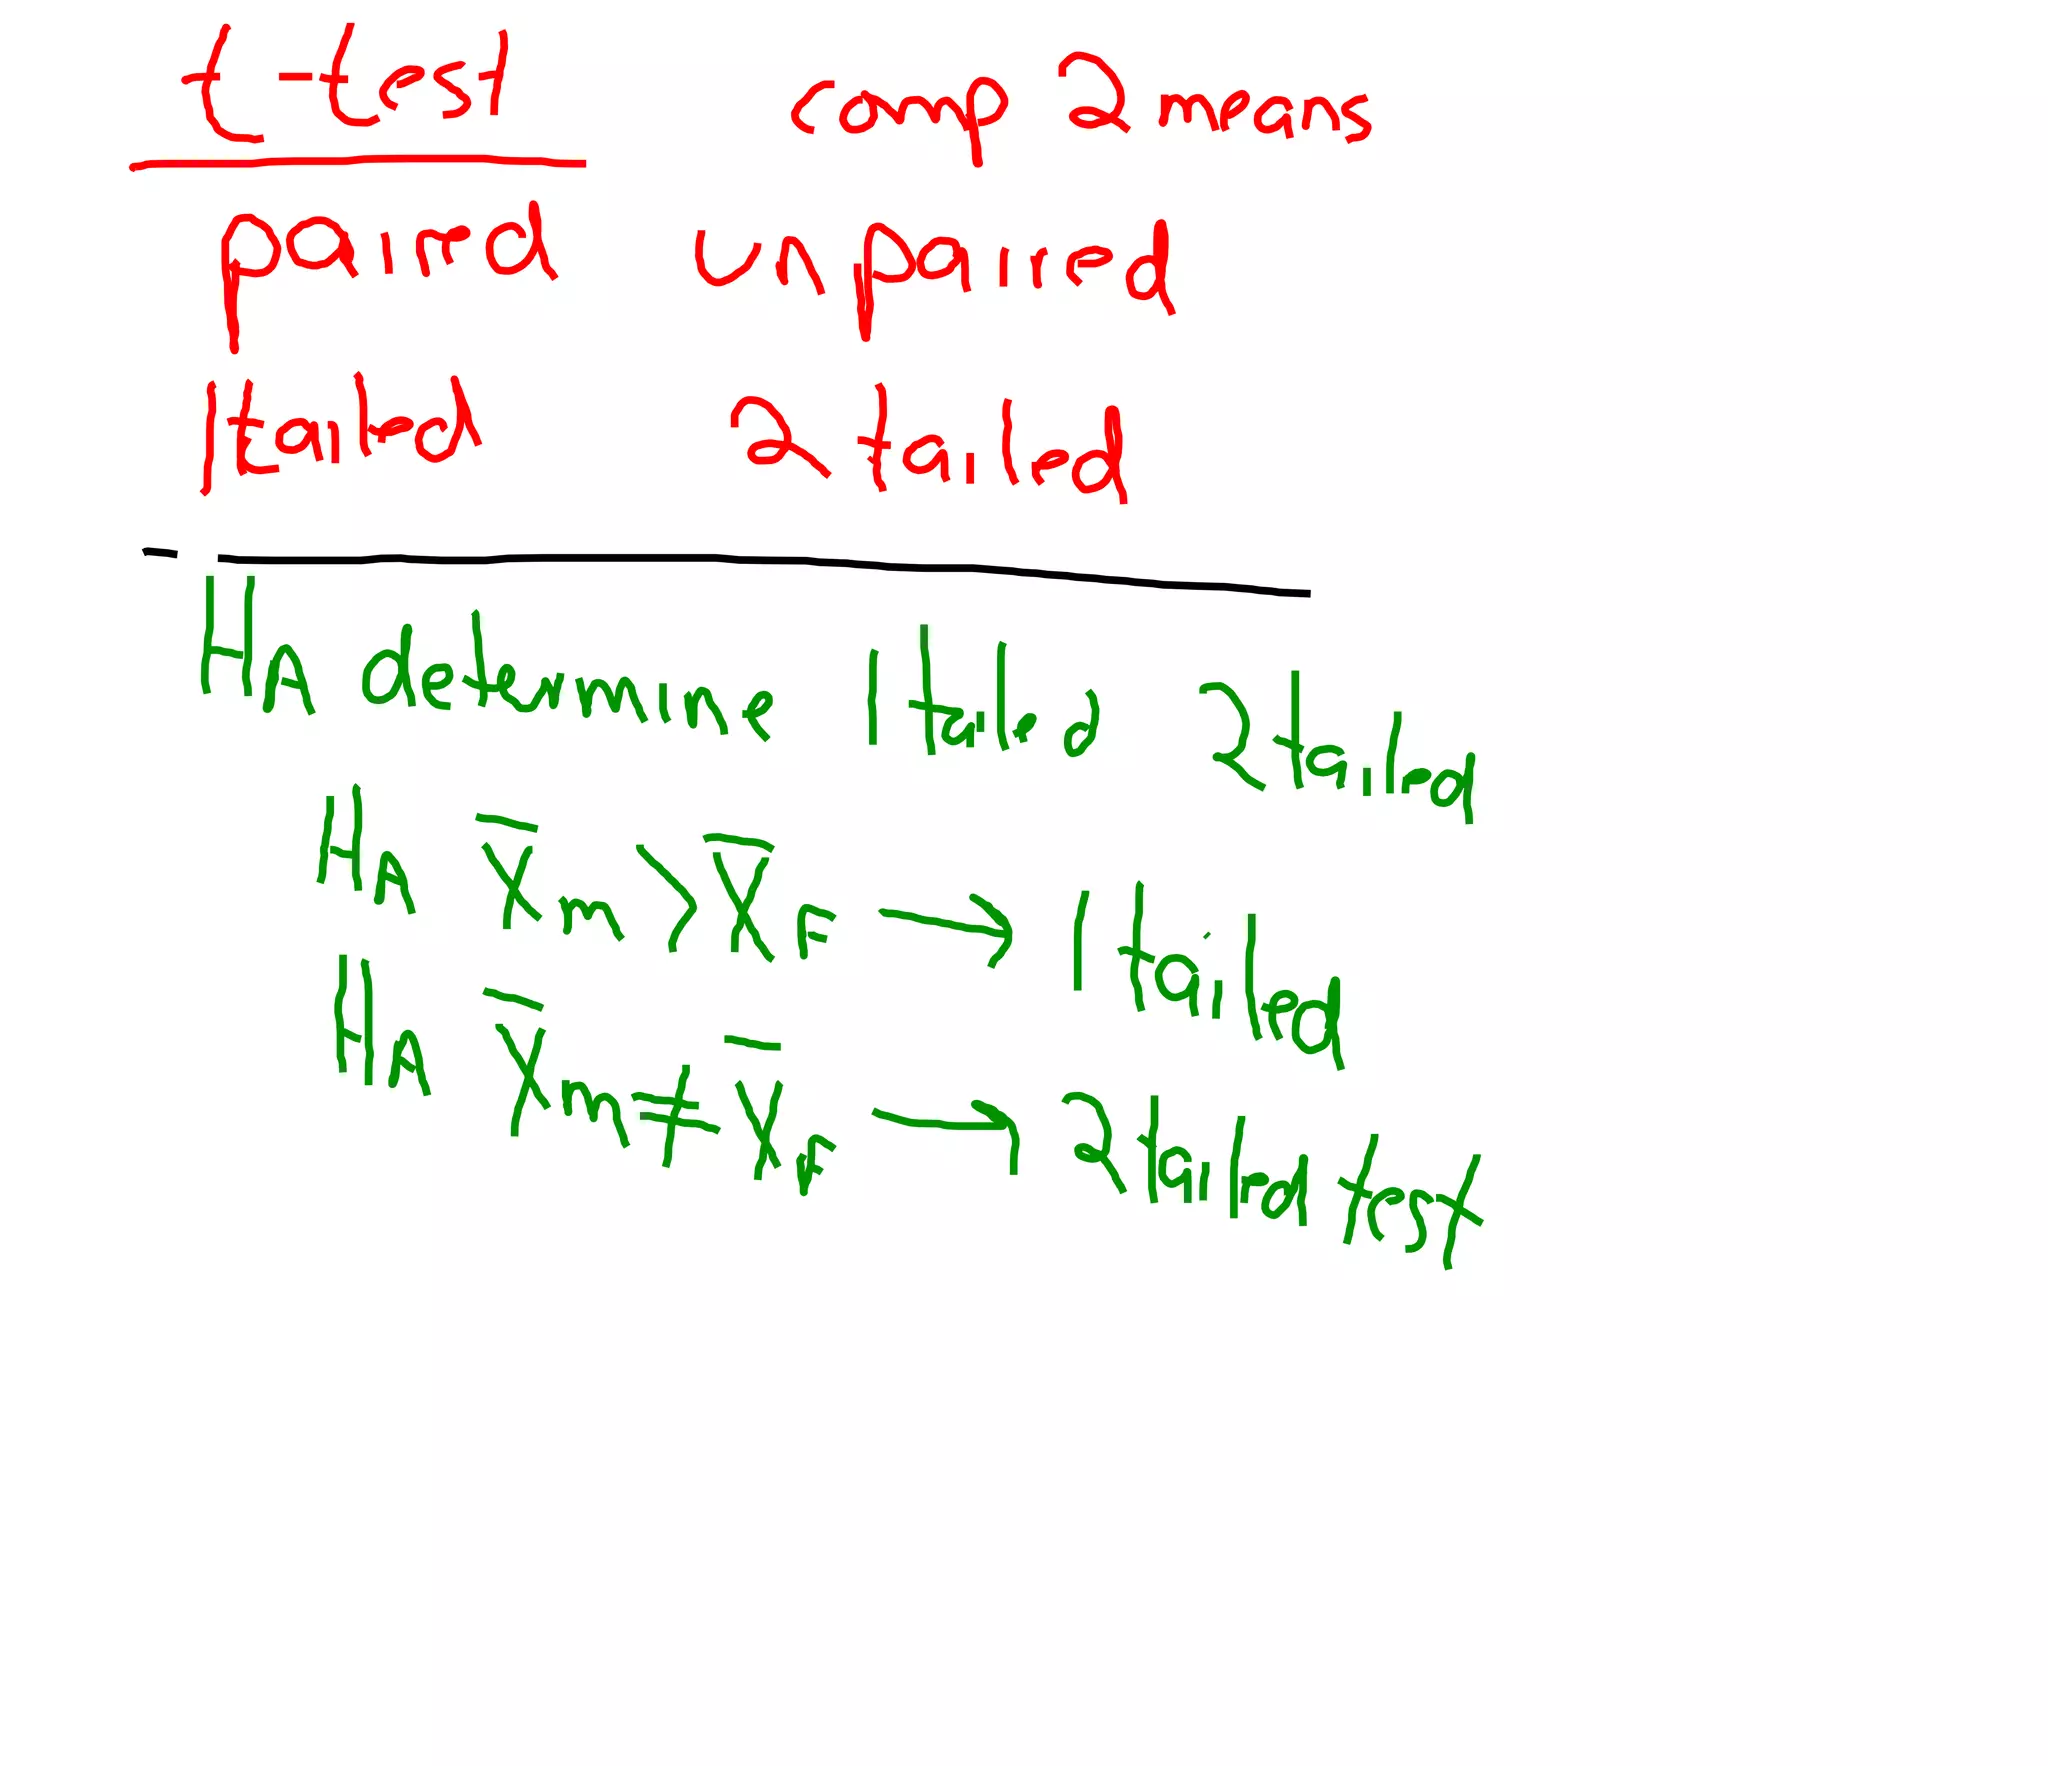 t-test comp 2 means
paired unpaired
1 tailed 2 tailed
HA determine 1 tailed 2 tailed
HA X̄m > X̄F → 1 tailed
HA X̄m ≠ X̄F → 2 tailed test